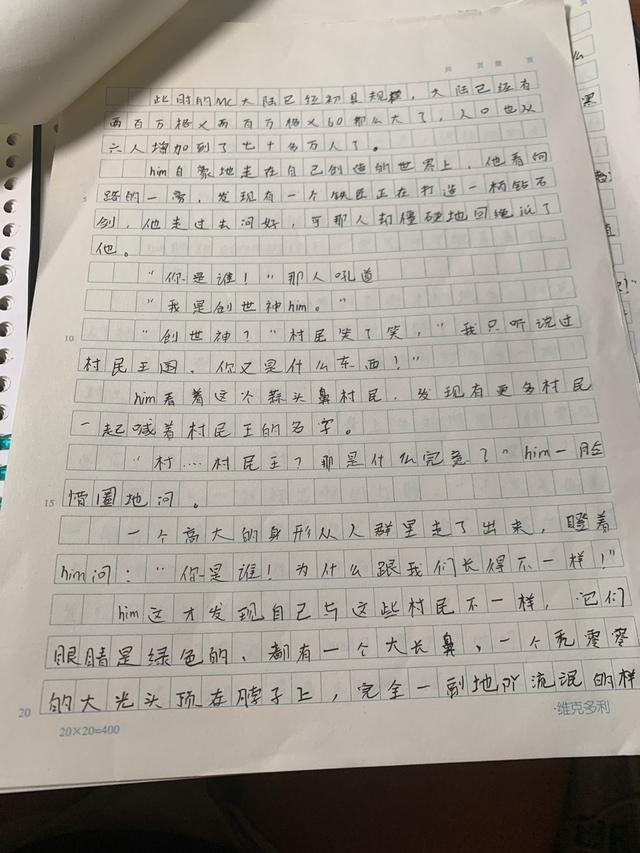 共 页 第 页
此时的MC大陆已经初具规模，大陆已经有
两百万格×两百万格×60那么大了，人口也从
六人增加到了七十多万人了。
him自豪地走在自己创造的世界上，他看向
路的一旁，发现有一个铁匠正在打造一柄钻石
剑，他走过去问好，可那人却僵硬地回绝了
他。
“你是谁！”那人吼道
“我是创世神him。”
“创世神？”村民笑了笑，“我只听说过
村民王国，你又是什么东西！”
him看着这个蒜头鼻村民，发现有更多村民
一起喊着村民王的名字。
“村……村民王？那是什么完竟了”him一脸
懵圈地问。
一个高大的身形从人群里走了出来，瞪着
him问：“你是谁！为什么跟我们长得不一样！”
him这才发现自己与这些村民不一样，它们
眼睛是绿色的，都有一个大长鼻，一个秃零零
的大光头顶在脖子上，完全一副地阶流氓的样
5
10
15
20
20×20=400
维克多利